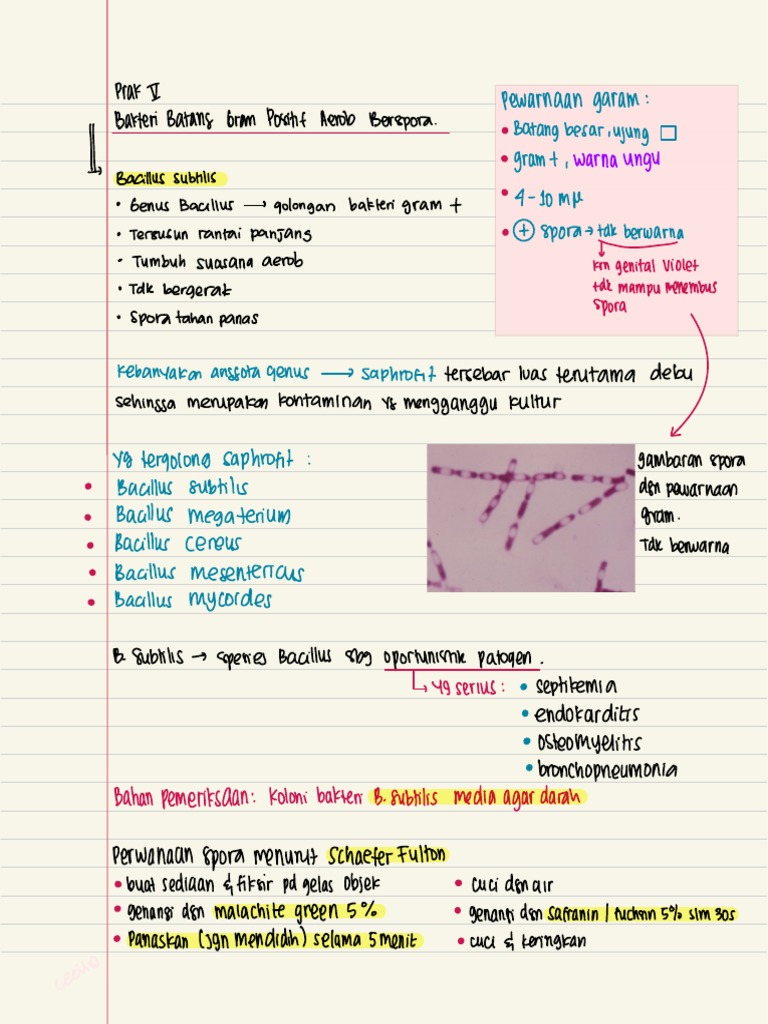 Prak V
Bakteri Batang Gram Positif Aerob Berspora.
Bacillus subtilis
• Genus Bacillus → golongan bakteri gram +
• Tersusun rantai panjang
• Tumbuh suasana aerob
• Tdk bergerak
• Spora tahan panas
Pewarnaan garam :
• Batang besar, ujung □
• gram +, warna ungu
• 4-10 mµ
• + spora → tdk berwarna
krn genital violet
tdk mampu menembus
spora
Kebanyakan anggota genus → saphrofit tersebar luas terutama debu
sehingga merupakan kontaminan yg mengganggu kultur
Yg tergolong saphrofit :
• Bacillus subtilis
• Bacillus megaterium
• Bacillus cereus
• Bacillus mesentericus
• Bacillus mycordes
gambaran spora
dgn pewarnaan
gram.
Tdk berwarna
B. Subtilis → speries Bacillus sbg oportunistik patogen.
Yg serius :
• septikemia
• endokarditis
• osteomyelitis
• bronchopneumonia
Bahan pemeriksaan: Koloni bakteri B. subtilis media agar darah
Perwanaan spora menurut Schaefer Fulton
• buat sediaan & fiksir pd gelas objek
• genangi dgn malachite green 5%
• Panaskan (jgn mendidih) selama 5 menit
• cuci dgn air
• genangi dgn safranin / fuchsin 5% slm 30s
• cuci & keringkan